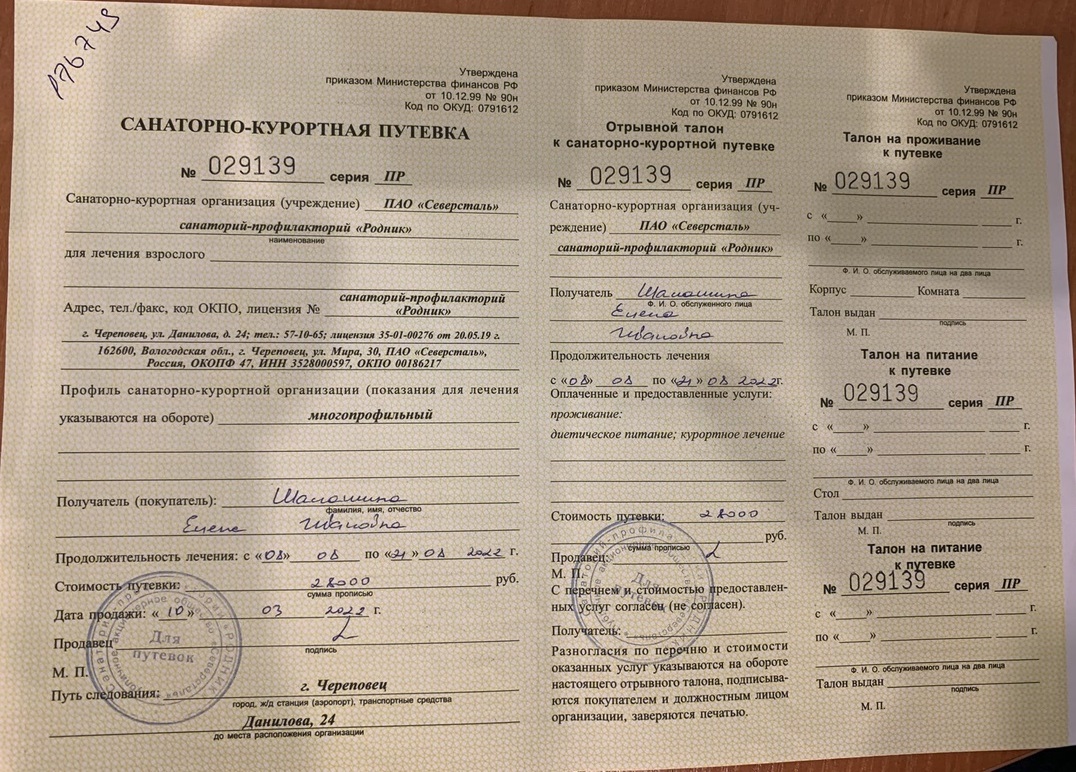 176749
Утверждена
приказом Министерства финансов РФ
от 10.12.99 № 90н
Код по ОКУД: 0791612
САНАТОРНО-КУРОРТНАЯ ПУТЕВКА
№ 029139 серия ПР
Санаторно-курортная организация (учреждение) ПАО «Северсталь»
санаторий-профилакторий «Родник»
наименование
для лечения взрослого
Адрес, тел./факс, код ОКПО, лицензия № санаторий-профилакторий
«Родник»
г. Череповец, ул. Данилова, д. 24; тел.: 57-10-65; лицензия 35-01-00276 от 20.05.19 г.
162600, Вологодская обл., г. Череповец, ул. Мира, 30, ПАО «Северсталь»,
Россия, ОКОПФ 47, ИНН 3528000597, ОКПО 00186217
Профиль санаторно-курортной организации (показания для лечения
указываются на обороте) многопрофильный
Получатель (покупатель): Шалашина
фамилия, имя, отчество
Елена Ивановна
Продолжительность лечения: с «08» 08 по «21» 08 2022 г.
Стоимость путевки: 28000 руб.
сумма прописью
Дата продажи: «10» 03 2022 г.
Продавец
подпись
Для
путевок
М. П.
Путь следования: г. Череповец
город, ж/д станция (аэропорт), транспортные средства
Данилова, 24
до места расположения организации
Утверждена
приказом Министерства финансов РФ
от 10.12.99 № 90н
Код по ОКУД: 0791612
Отрывной талон
к санаторно-курортной путевке
№ 029139 серия ПР
Санаторно-курортная организация (уч-
реждение) ПАО «Северсталь»
санаторий-профилакторий «Родник»
Получатель Шалашина
Ф. И. О. обслуженного лица
Елена
Ивановна
Продолжительность лечения
с «08» 08 по «21» 08 2022г.
Оплаченные и предоставленные услуги:
проживание:
диетическое питание; курортное лечение
Стоимость путевки: 28000 руб.
сумма прописью
Продавец
М. П.
Для
С перечнем и стоимостью предоставлен-
ных услуг согласен (не согласен).
Получатель:
Разногласия по перечню и стоимости
оказанных услуг указываются на обороте
настоящего отрывного талона, подписыва-
ются покупателем и должностным лицом
организации, заверяются печатью.
Утверждена
приказом Министерства финансов РФ
от 10.12.99 № 90н
Код по ОКУД: 0791612
Талон на проживание
к путевке
№ 029139 серия ПР
с «    » г.
по «    » г.
Ф. И. О. обслуживаемого лица на два лица
Корпус Комната
Талон выдан
подпись
М. П.
Талон на питание
к путевке
№ 029139 серия ПР
с «    » г.
по «    » г.
Ф. И. О. обслуживаемого лица на два лица
Стол
Талон выдан
подпись
М. П.
Талон на питание
к путевке
№ 029139 серия ПР
с «    » г.
по «    » г.
Ф. И. О. обслуживаемого лица на два лица
Талон выдан
подпись
М. П.